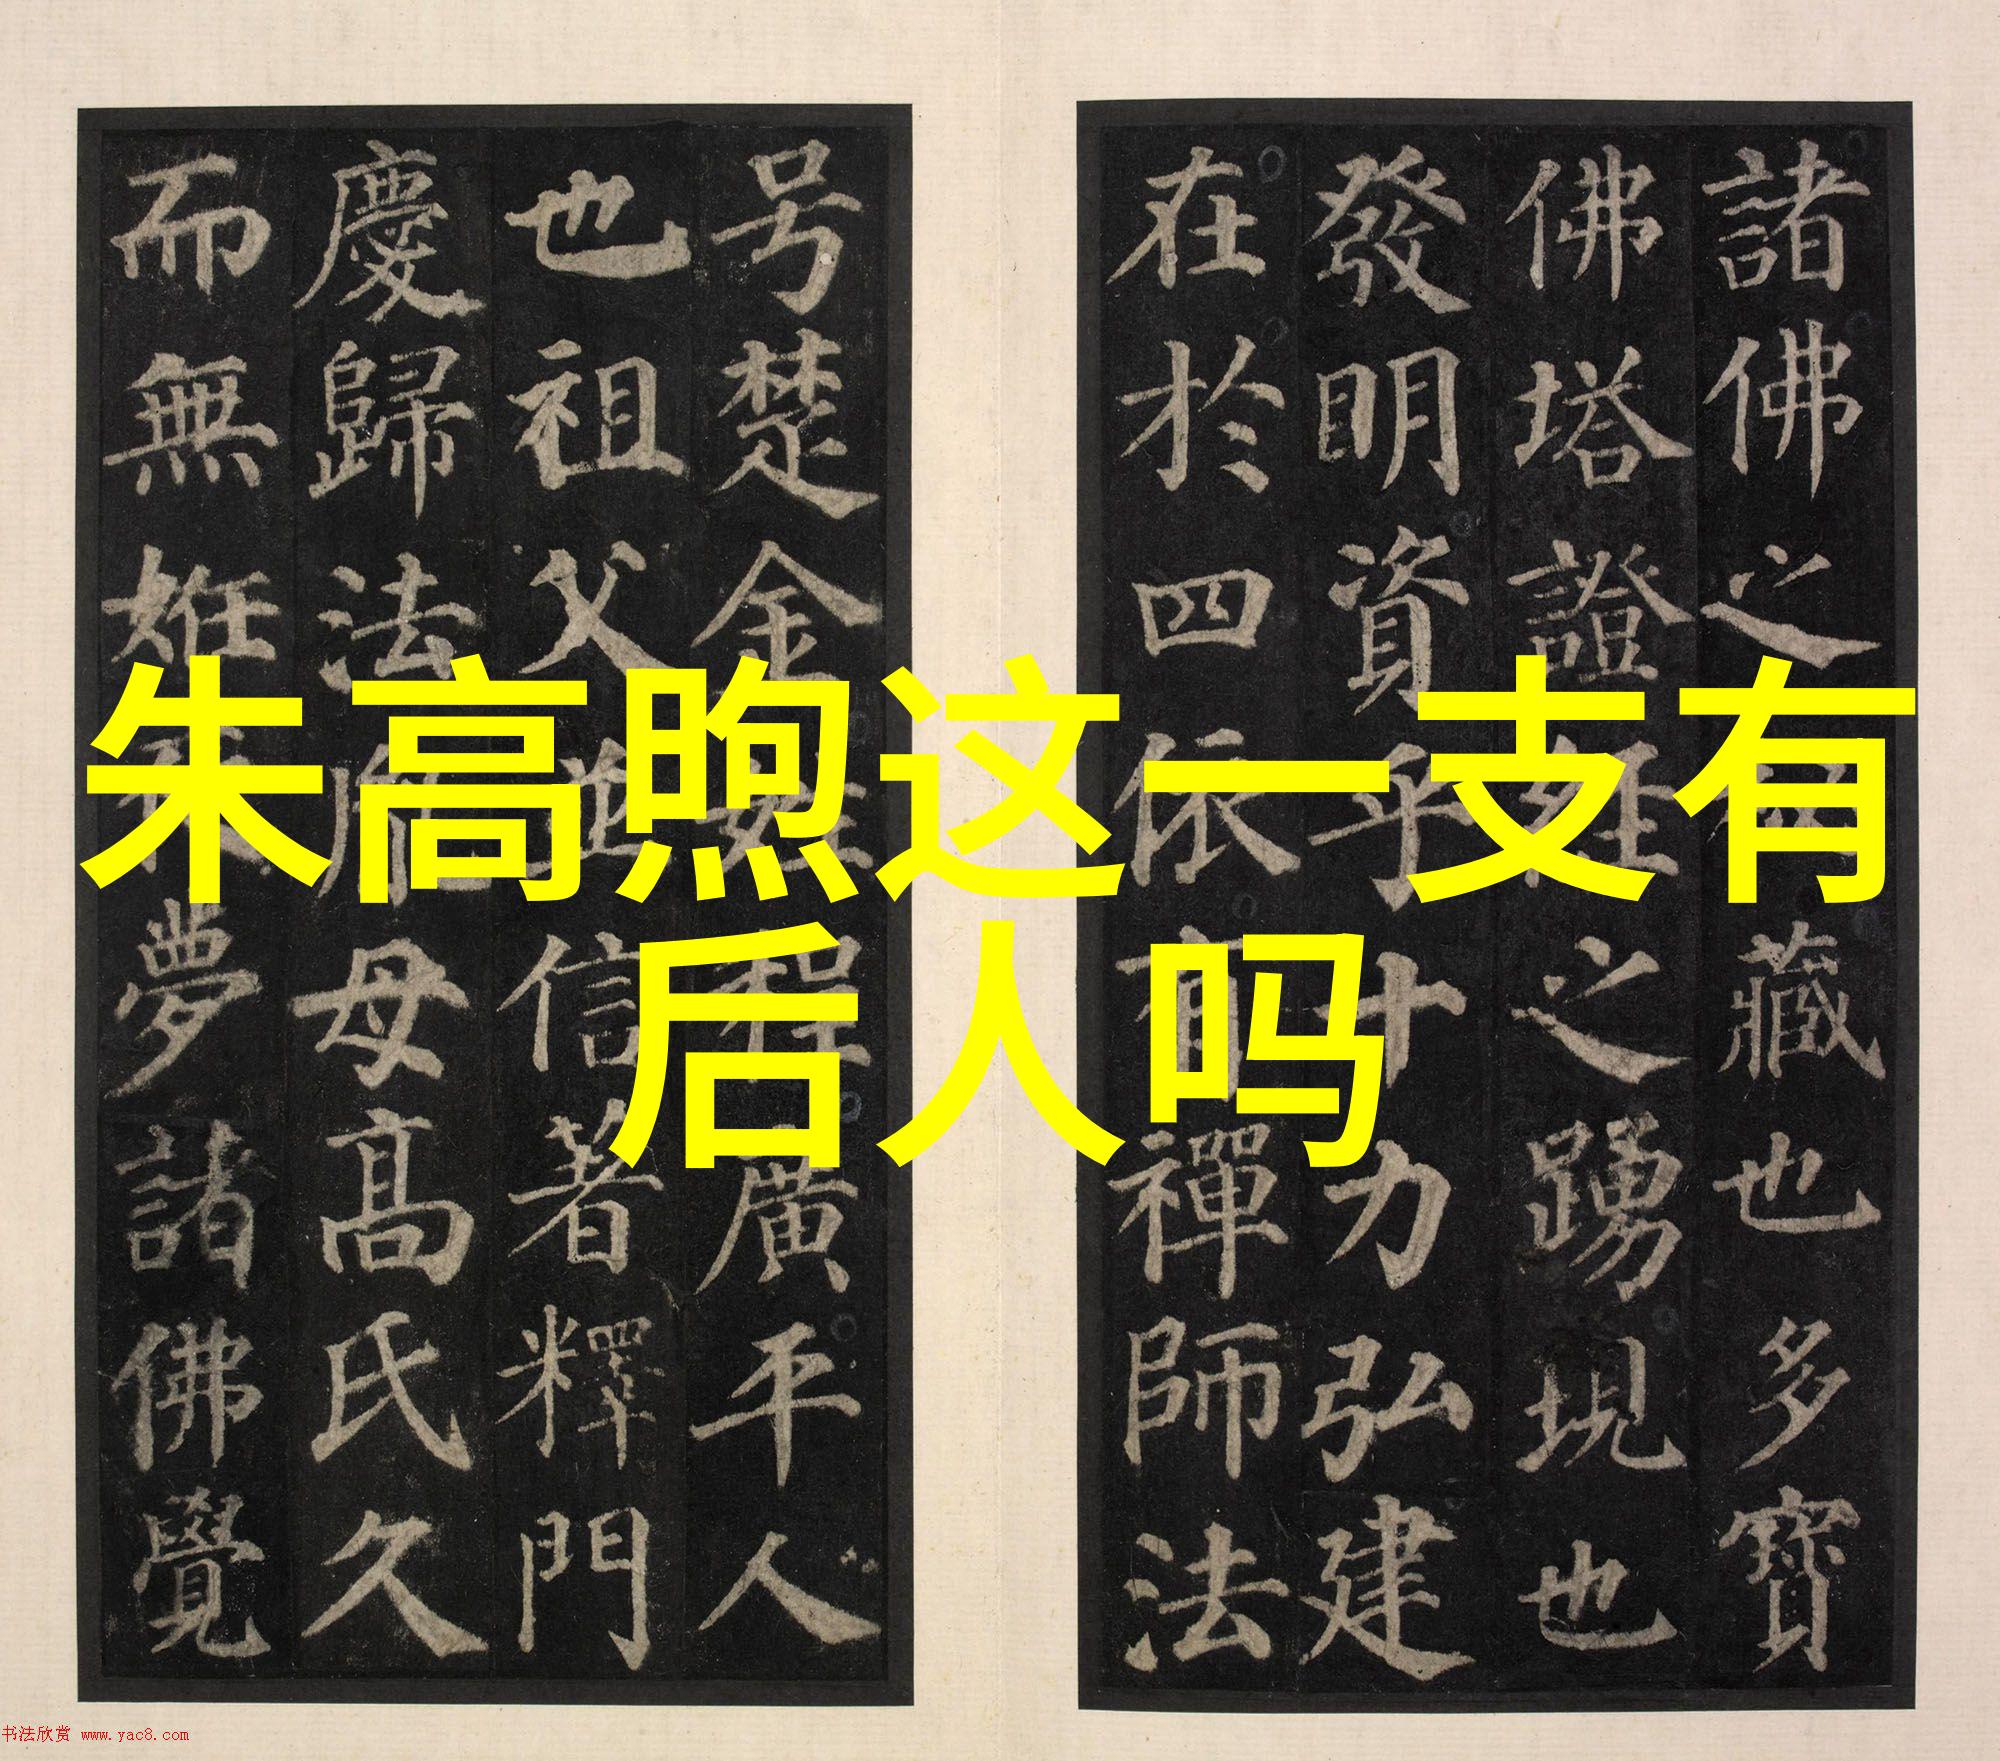 朱高煦这一支有
后人吗
諸佛之藏也多寶
佛塔證經之踴現也
發明資乎十力弘建
在於四依有禪師法
号楚金姓程廣平人
也祖父並信著釋門
慶歸法胤母高氏久
而無姙夜夢諸佛覺
书法欣赏 www.yac8.com